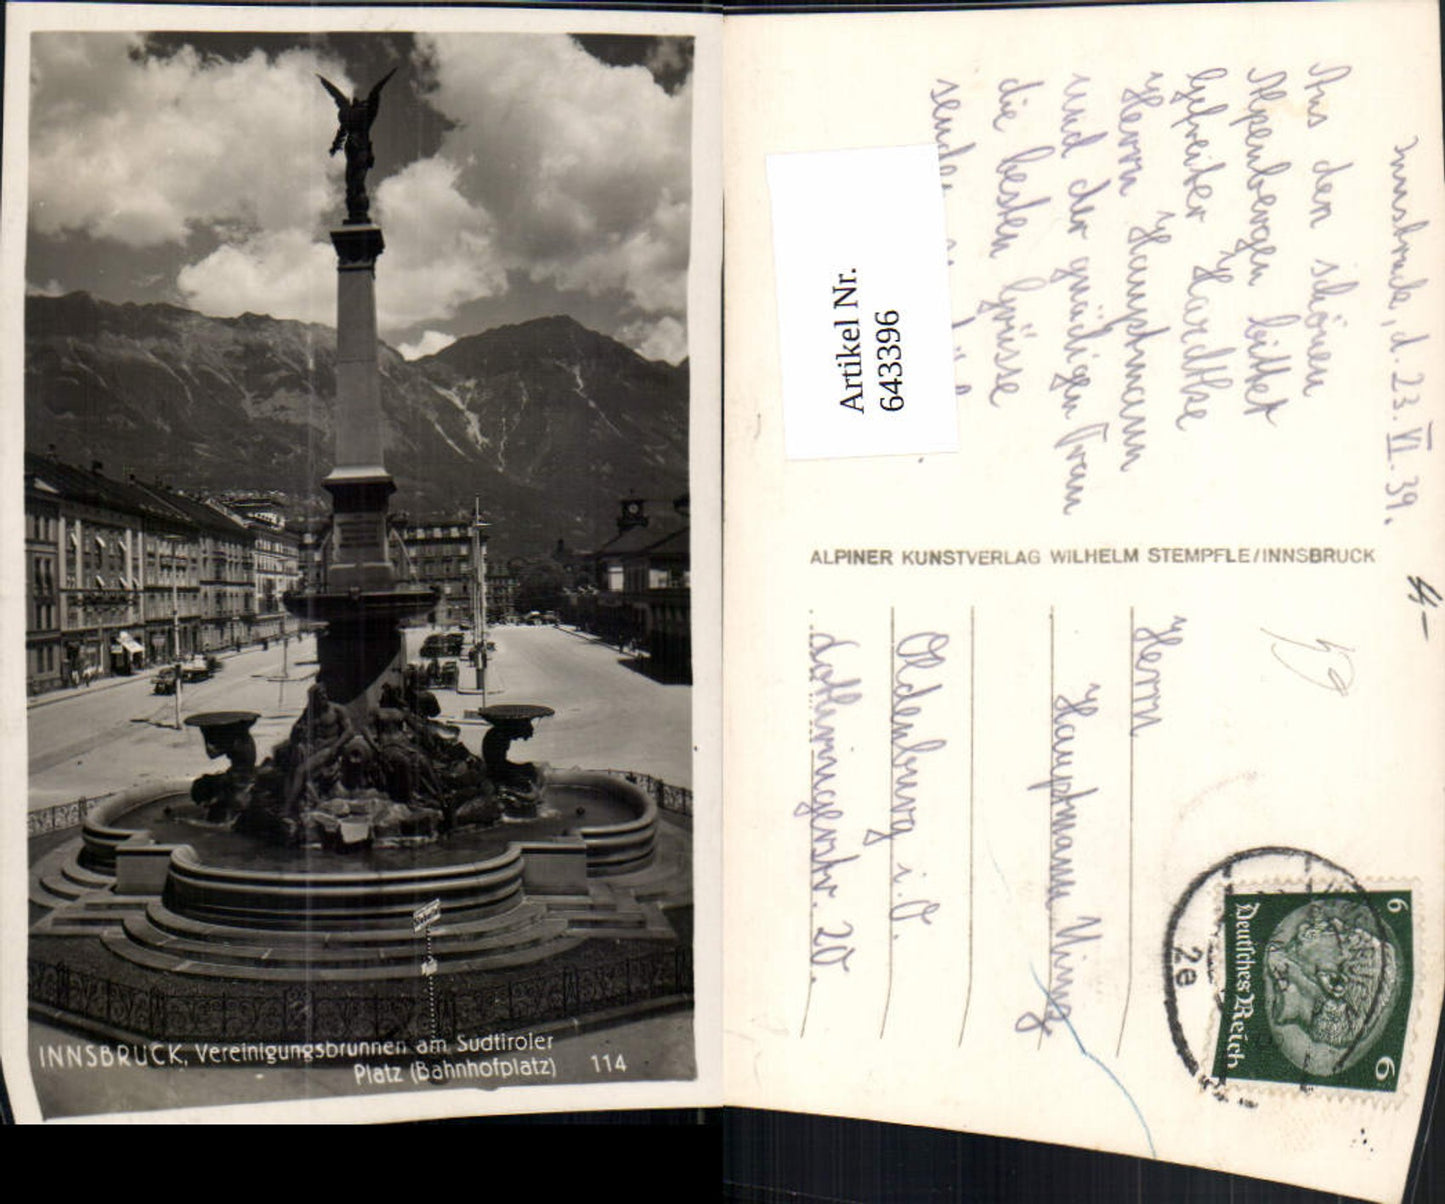 INNSBRUCK, Vereinigungsbrunnen am Südtiroler
Platz (Bahnhofplatz) 114
Innsbruck, d. 23. VI. 39.
Aus den schönen
Alpenbergen bittet
Gefreiter Hardtke
Herrn Hauptmann
und der gnädigen Frau
die besten Grüsse
Artikel Nr.
643396
ALPINER KUNSTVERLAG WILHELM STEMPFLE/INNSBRUCK
Herrn
Hauptmann
Oldenburg i. O.
Lothringerstr. 20.
Deutsches Reich
6
6
2e